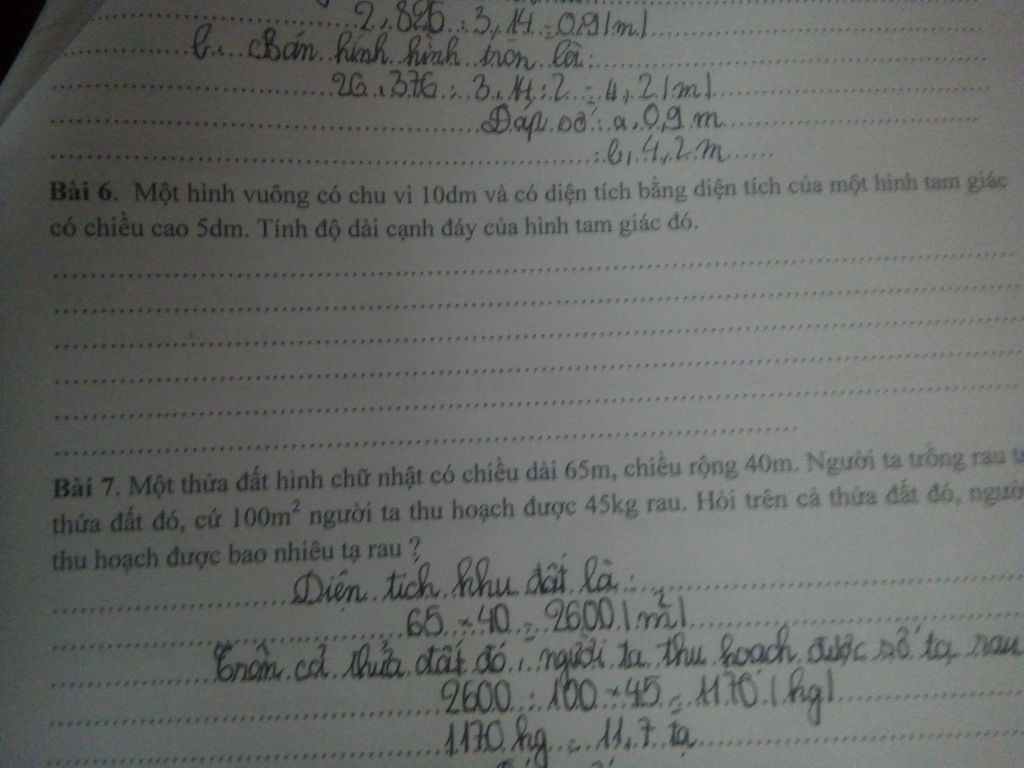 2,826 : 3,14 = 0,9 (m)
b, Bán kính hình tròn là:
26,376 : 3,14 : 2 = 4,2 (m)
Đáp số: a, 0,9 m
b, 4,2 m
Bài 6. Một hình vuông có chu vi 10dm và có diện tích bằng diện tích của một hình tam giác
có chiều cao 5dm. Tính độ dài cạnh đáy của hình tam giác đó.
Bài 7. Một thửa đất hình chữ nhật có chiều dài 65m, chiều rộng 40m. Người ta trồng rau
thửa đất đó, cứ 100m² người ta thu hoạch được 45kg rau. Hỏi trên cả thửa đất đó, người
thu hoạch được bao nhiêu tạ rau ?
Diện tích khu đất là:
65 × 40 = 2600 (m²)
Trên cả thửa đất đó, người ta thu hoạch được số tạ rau
2600 : 100 × 45 = 1170 (kg)
1170 kg = 11,7 tạ